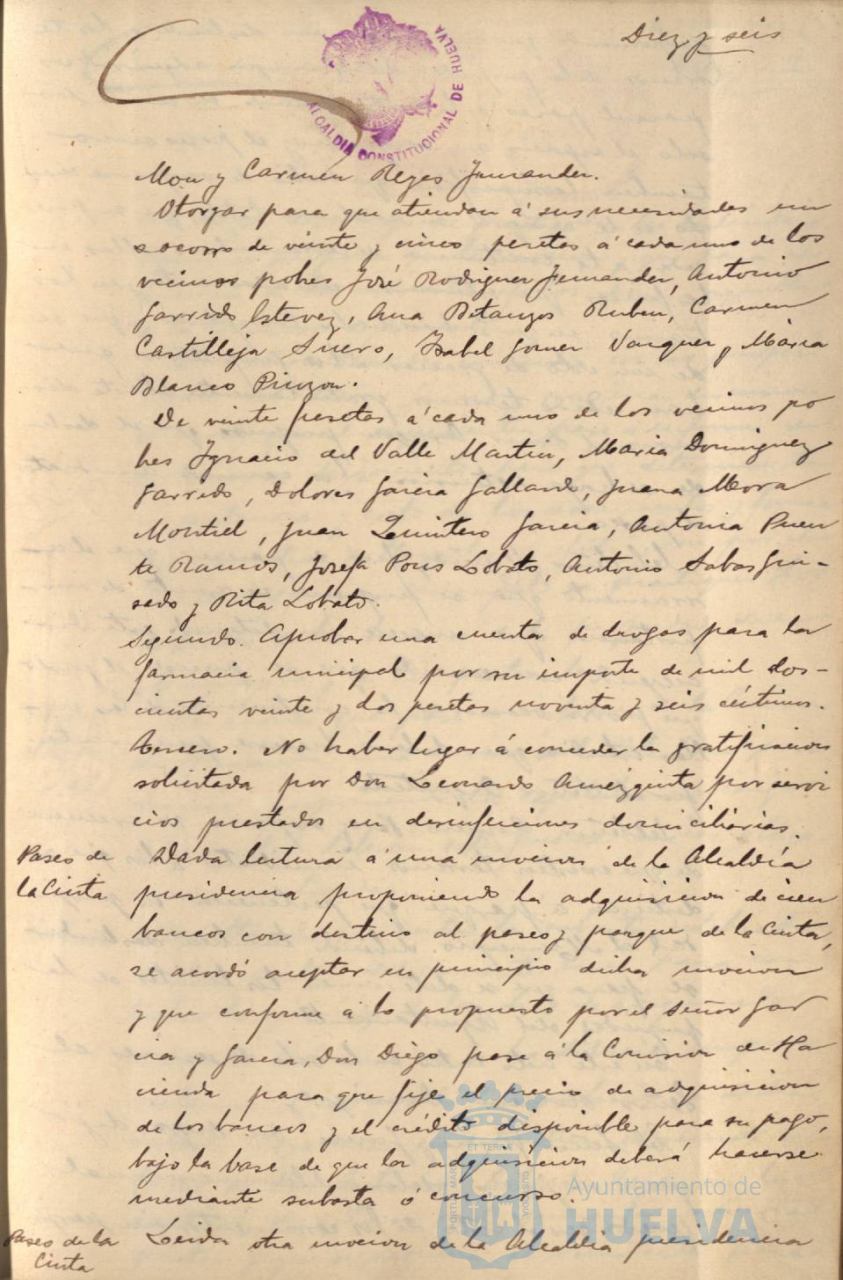 Diez y seis
ALCALDIA CONSTITUCIONAL DE HUELVA
Mon y Carmen Reyes Fernandez.
Otorgar para que atiendan á sus necesidades un
socorro de veinte y cinco pesetas á cada uno de los
vecinos pobres José Rodriguez Fernandez, Antonio
Garrido Estevez, Ana Betanzos Ruben, Carmen
Castilleja Suero, Isabel Gomez Vazquez y Maria
Blanco Pinzon.
De veinte pesetas á cada uno de los vecinos po
bres Ignacio del Valle Martin, Maria Dominguez
Garrido, Dolores Garcia Gallardo, Juana Mora
Montiel, Juan Quintero Garcia, Antonia Puen
te Ramos, Josefa Pons Lobato, Antonio Sabas Gui-
sado y Rita Lobato.
Segundo. Aprobar una cuenta de drogas para la
farmacia municipal por su importe de mil dos-
cientas veinte y dos pesetas noventa y seis céntimos.
Tercero. No haber lugar á conceder la gratificacion
solicitada por Don Leonardo por servi
cios prestados en desinfecciones domiciliarias.
Paseo de
la Cinta
Dada lectura á una mocion de la Alcaldía
presidencia proponiendo la adquisicion de cien
bancos con destino al paseo y parque de la Cinta,
se acordó aceptar en principio dicha mocion
y que conforme á lo propuesto por el Señor Gar
cia y Garcia, Don Diego pase á la Comision de Ha
cienda para que fije el precio de adquisicion
de los bancos y el crédito disponible para su pago,
bajo la base de que la adquisicion deberá hacerse
mediante subasta ó concurso.
Paseo de la
Cinta
Leida otra mocion de la Alcaldia presidencia
Ayuntamiento de
HUELVA